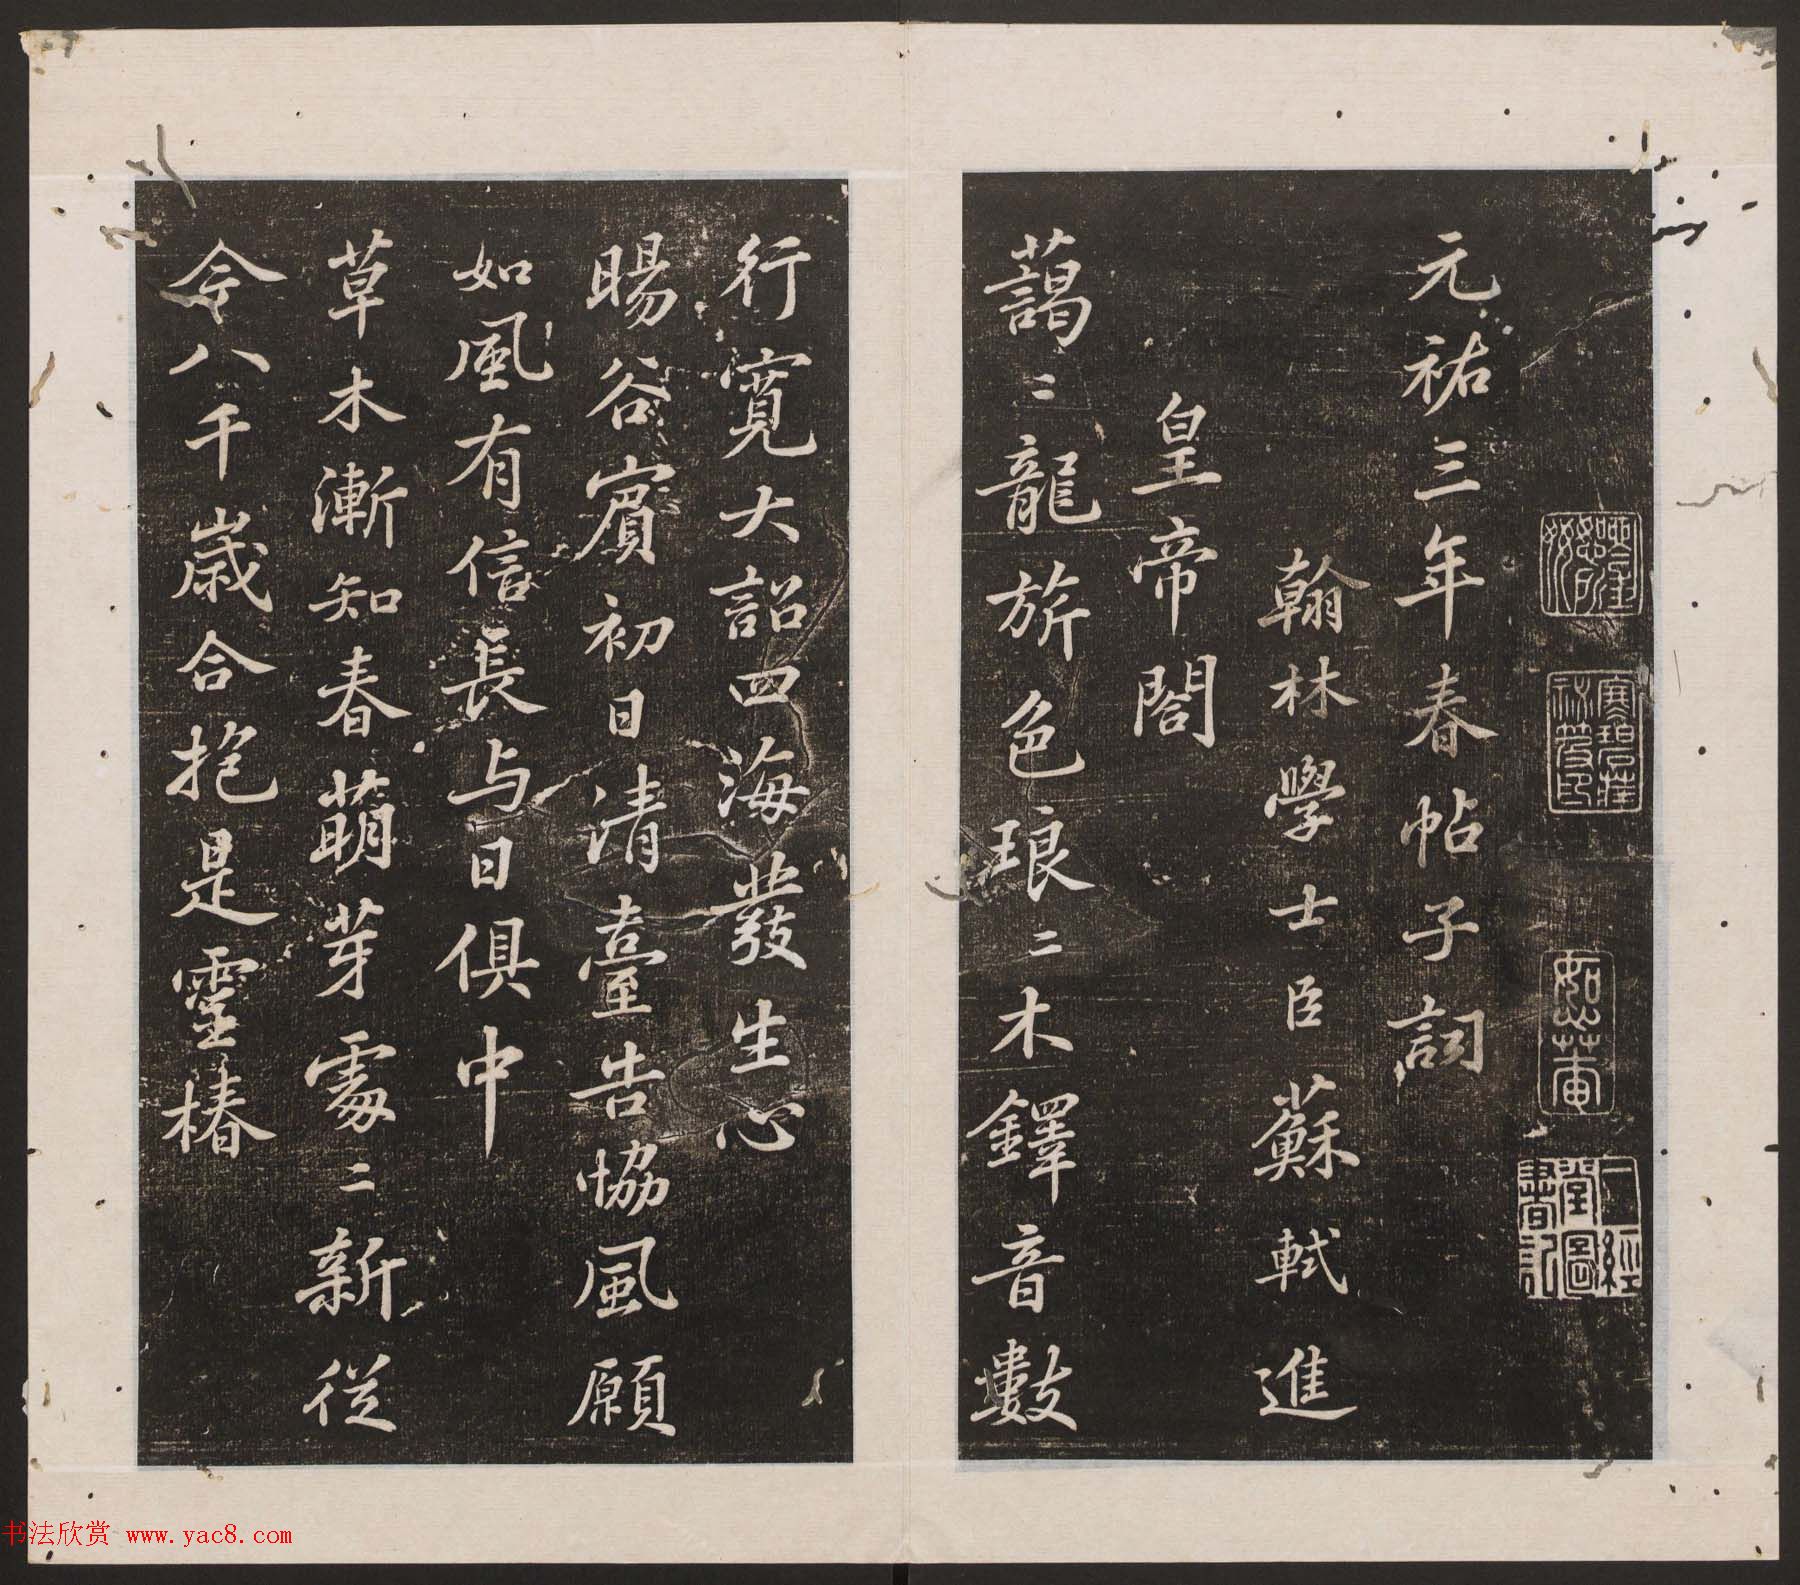 元祐三年春帖子詞
翰林學士臣蘇軾進
皇帝閤
藹〻龍旂色琅〻木鐸音數
行寬大詔四海發生心
暘谷賓初日清臺告協風願
如風有信長与日俱中
草木漸知春萌芽處〻新從
今八千歲合抱是靈椿
寒碧莊
恕菴
一經堂圖書記
书法欣赏 www.yac8.com